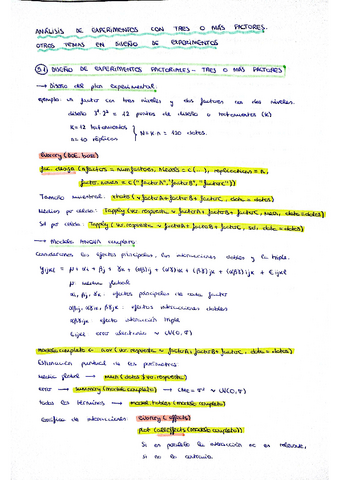 ANÁLISIS DE EXPERIMENTOS CON TRES O MÁS FACTORES.
OTROS TEMAS EN DISEÑO DE EXPERIMENTOS
DISEÑO DE EXPERIMENTOS FACTORIALES - TRES O MÁS FACTORES
→ Diseño del plan experimental
ejemplo un factor con tres niveles y dos factores con dos niveles.
diseño 3¹ 2² = 12 puntos de diseño o tratamientos (K)
K = 12 tratamientos
n = 10 réplicas
N = K·n = 120 datos.
library (DoE.base)
fac.design (nfactors = num factores, nlevels = c(...), replications = n,
factor.names = c("factorA", "factorB", "factorC"))
Tamaño muestral: xtabs (~ factorA + factorB + factorC, data = datos)
Medias por celda: Tapply (var.respuesta ~ factorA + factorB + factorC, mean, data = datos)
Sd por celda: Tapply (var.respuesta ~ factorA + factorB + factorC, sd, data = datos)
→ Modelo ANOVA completo
Consideramos los efectos principales, las interacciones dobles y la triple.
Yijkl = μ + αi + βj + γk + (αβ)ij + (αγ)ik + (βγ)jk + (αβγ)ijk + εijkl
μ: media global
αi, βj, γk: efectos principales de cada factor
αβij, αγik, βγjk: efectos interacciones dobles
αβγijk efecto interacción triple
εijkl error aleatorio ~ N(0, σ)
modelo.completo <- aov (var.respuesta ~ factorA * factorB * factorC, data = datos)
Estimación puntual de los parámetros:
media global → mean (datos$var.respuesta)
error → summary (modelo.completo) → CME = σ̂² ~ N(0, σ)
todos los términos → model.tables (modelo.completo)
Gráfico de interacciones: library (effects)
plot (allEffects (modelo.completo))
Si es paralelo la interacción no es relevante,
si no lo contrario